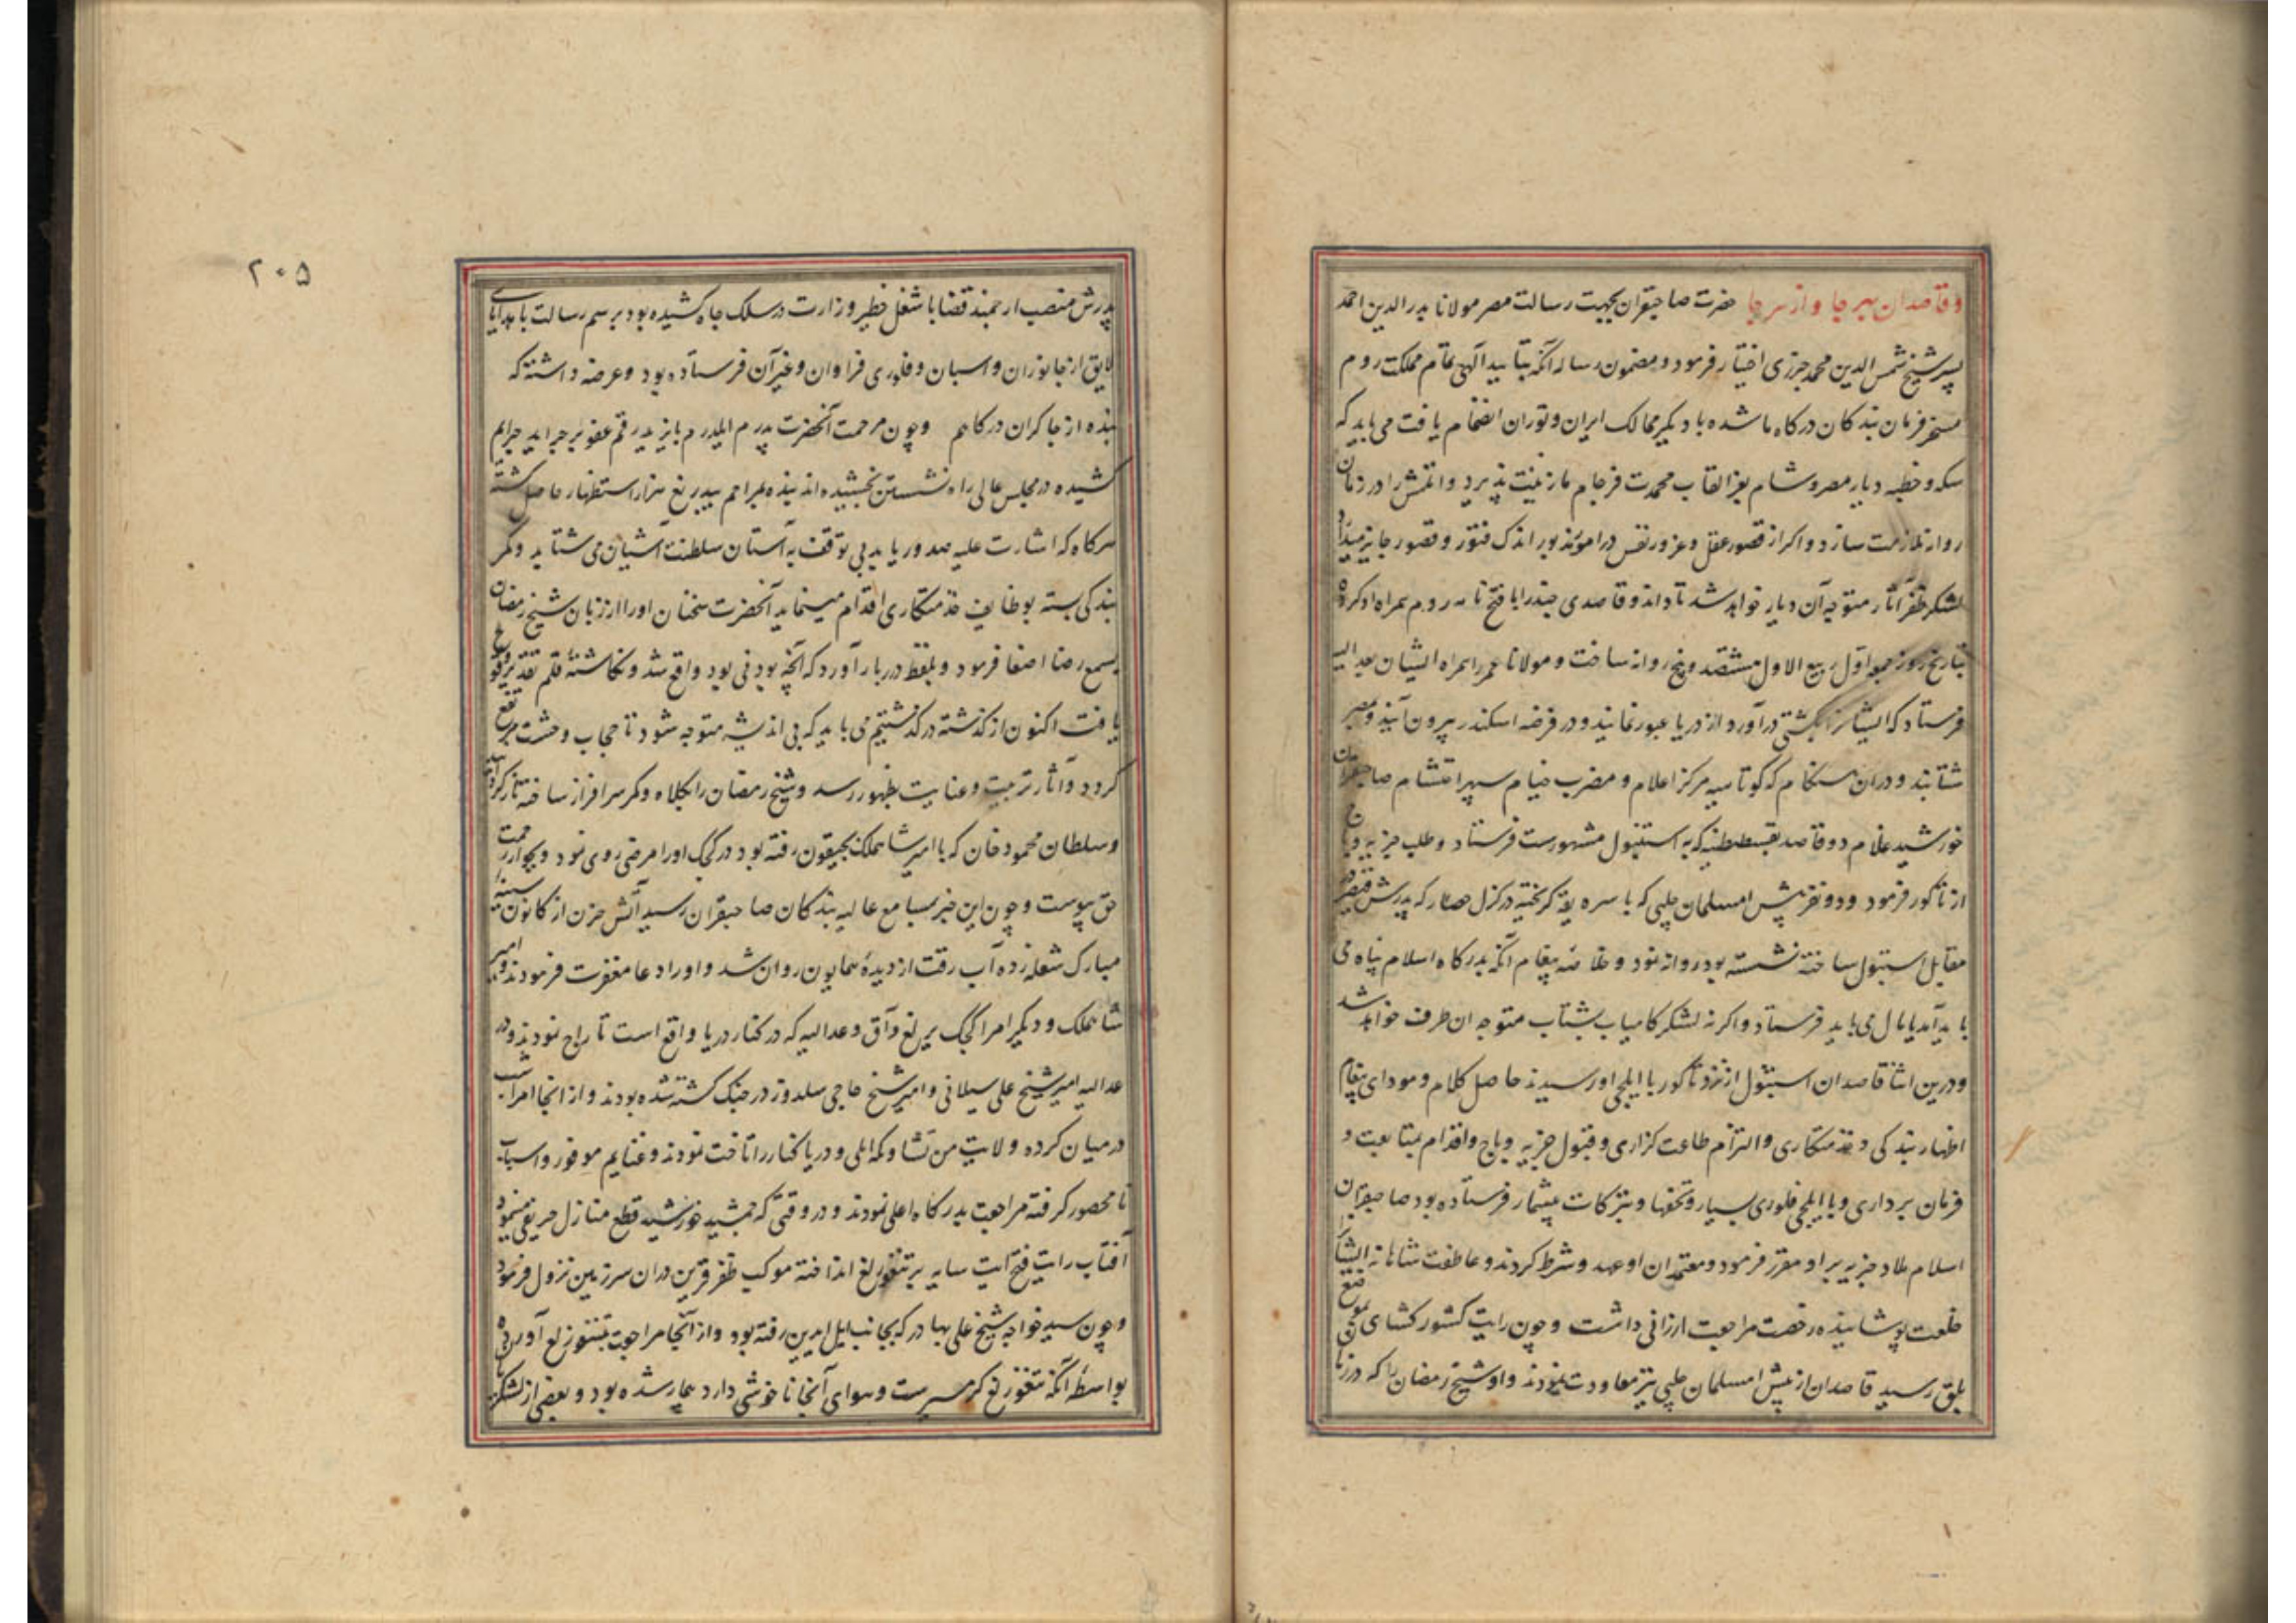 وقاصدان بهر جا واز هر جا حضرت صاحبقران بجهت رسالت مصر مولانا بدر الدین احمد
پسر شیخ شمس الدین محمد جزری اختیار فرمود ومضمون رساله آنکه بتایید آلهی تمام مملکت روم
مسخر فرمان بندکان درکاه ما شده با دیکر ممالک ایران وتوران انضمام یافت می باید که
سکه وخطبه دیار مصر وشام بعز القاب محمدت فرجام ما زینت پذیرد واتلمش را در زمان
روانه ملازمت سازد واکر از قصور عقل وغرور نفس در امور مذبور اندک فتور وقصور جایز میدارد
لشکر ظفر آثار متوجه آن دیار خواهد شد تا داند وقاصدی چند را با فتح نامه روم همراه او کرده
بتاریخ روز جمعه اول ربیع الاول هشتصد وپنج روانه ساخت ومولانا عمر را همراه ایشان بعدالیه
فرستاد که ایشانرا بکشتی درآورد از دریا عبور نمایند ودر فرضه اسکندر بیرون آیند وبمصر
شتابند ودران هنکام که کوتاهیه مرکز اعلام ومضرب خیام سپهر احتشام صاحبقران
خورشید غلام دو قاصد بقسطنطنیه که به استنبول مشهورست فرستاد وطلب جزیه وباج
از تاکور فرمود ودو نفر پیش امسلمان چلپی که با سره یقه کریخته در کزل حصار که پدرش قیصر
مقابل استنبول ساخته نشسته بود روانه نمود وخلاصه پیغام آنکه بدرکاه اسلام پناه می
باید آمد یا مال می باید فرستاد واکر نه لشکر کامیاب بشتاب متوجه ان طرف خواهد شد
ودرین اثنا قاصدان استنبول از نزد تاکور با ایلچی او رسیدند حاصل کلام ومودای پیغام
اظهار بندکی وخدمتکاری والتزام طاعت کزاری وقبول جزیه وباج واقدام بمتابعت و
فرمان برداری وبا ایلچی فلوری بسیار وتحفها وتبرکات بیشمار فرستاده بود صاحبقران
اسلام ملاذ جزیه بر او مقرر فرمود ومعتمدان او عهد وشرط کردند وعاطفت شاهانه ایشانرا
خلعت پوشانیده رخصت مراجعت ارزانی داشت وچون رایت کشور کشای بموضع
بلق رسید قاصدان از پیش امسلمان چلپی نیز معاودت نمودند واو شیخ رمضان را که در زمان
۲۰۵
پدرش منصب ارجمند قضا با شغل خطیر وزارت در سلک جاه کشیده بود برسم رسالت با هدایای
لایق از جانوران واسبان وفلوری فراوان وغیر آن فرستاده بود وعرضه داشته که
بنده از چاکران درکاهم وچون مرحمت آنحضرت پدرم ایلدرم بایزید رقم عفو بر جراید جرایم
کشیده در مجلس عالی راه نشستن بخشیده اند بنده بمراحم بیدریغ هزار استظهار حاصل کشته
هرکاه که اشارت علیه صدور یابد بی توقف به آستان سلطنت آشیان می شتابد وکمر
بندکی بسته بوظایف خدمتکاری اقدام مینماید آنحضرت سخنان اورا از زبان شیخ رمضان
بسمع رضا اصغا فرمود وبلفظ دربار آورد که آنچه بودنی بود واقع شد ونکاشته قلم تقدیر وقوع
یافت اکنون از کذشته در کذشتیم می باید که بی اندیشه متوجه شود تا حجاب وحشت مرتفع
کردد وآثار تربیت وعنایت بظهور رسد وشیخ رمضان را بکلاه وکمر سرافراز ساخته باز کردانید
وسلطان محمود خان که با امیر شاهملک بجیقون رفته بود در کجک اورا مرضی روی نمود وبجوار رحمت
حق پیوست وچون این خبر بمسامع عالیه بندکان صاحبقران رسید آتش حزن از کانون سینه
مبارک شعله زده آب رقت از دیدۀ همایون روان شد واورا دعا مغفرت فرمودند وامیر
شاهملک ودیکر امرا کجک یریلغ وآق وعدالیه که در کنار دریا واقع است تاراج نمودند ودر
عدالیه امیر شیخ علی سیلانی وامیر شیخ حاجی سلدوز در جنک کشته شده بودند واز انجا امرا شب
درمیان کرده ولایت من تشا وتکه ایلی ودریا کنار را تاخت نمودند وغنایم موفور واسباب
نامحصور کرفته مراجعت بدرکاه اعلی نمودند ودر وقتی که جمشید خورشید قطع منازل خریفی مینمود
آفتاب رایت فتح آیت سایه بر تنغوزلغ انداخته موکب ظفر قرین دران سرزمین نزول فرمود
وچون سید خواجه شیخ علی بهادر که بجانب ایل ایدین رفته بود واز آنجا مراجعت بتنغوزلغ آورده
بواسطۀ آنکه تنغوزلغ کرمسیرست وهوای آنجا ناخوشی دارد بیمار شده بود وبعضی از لشکر